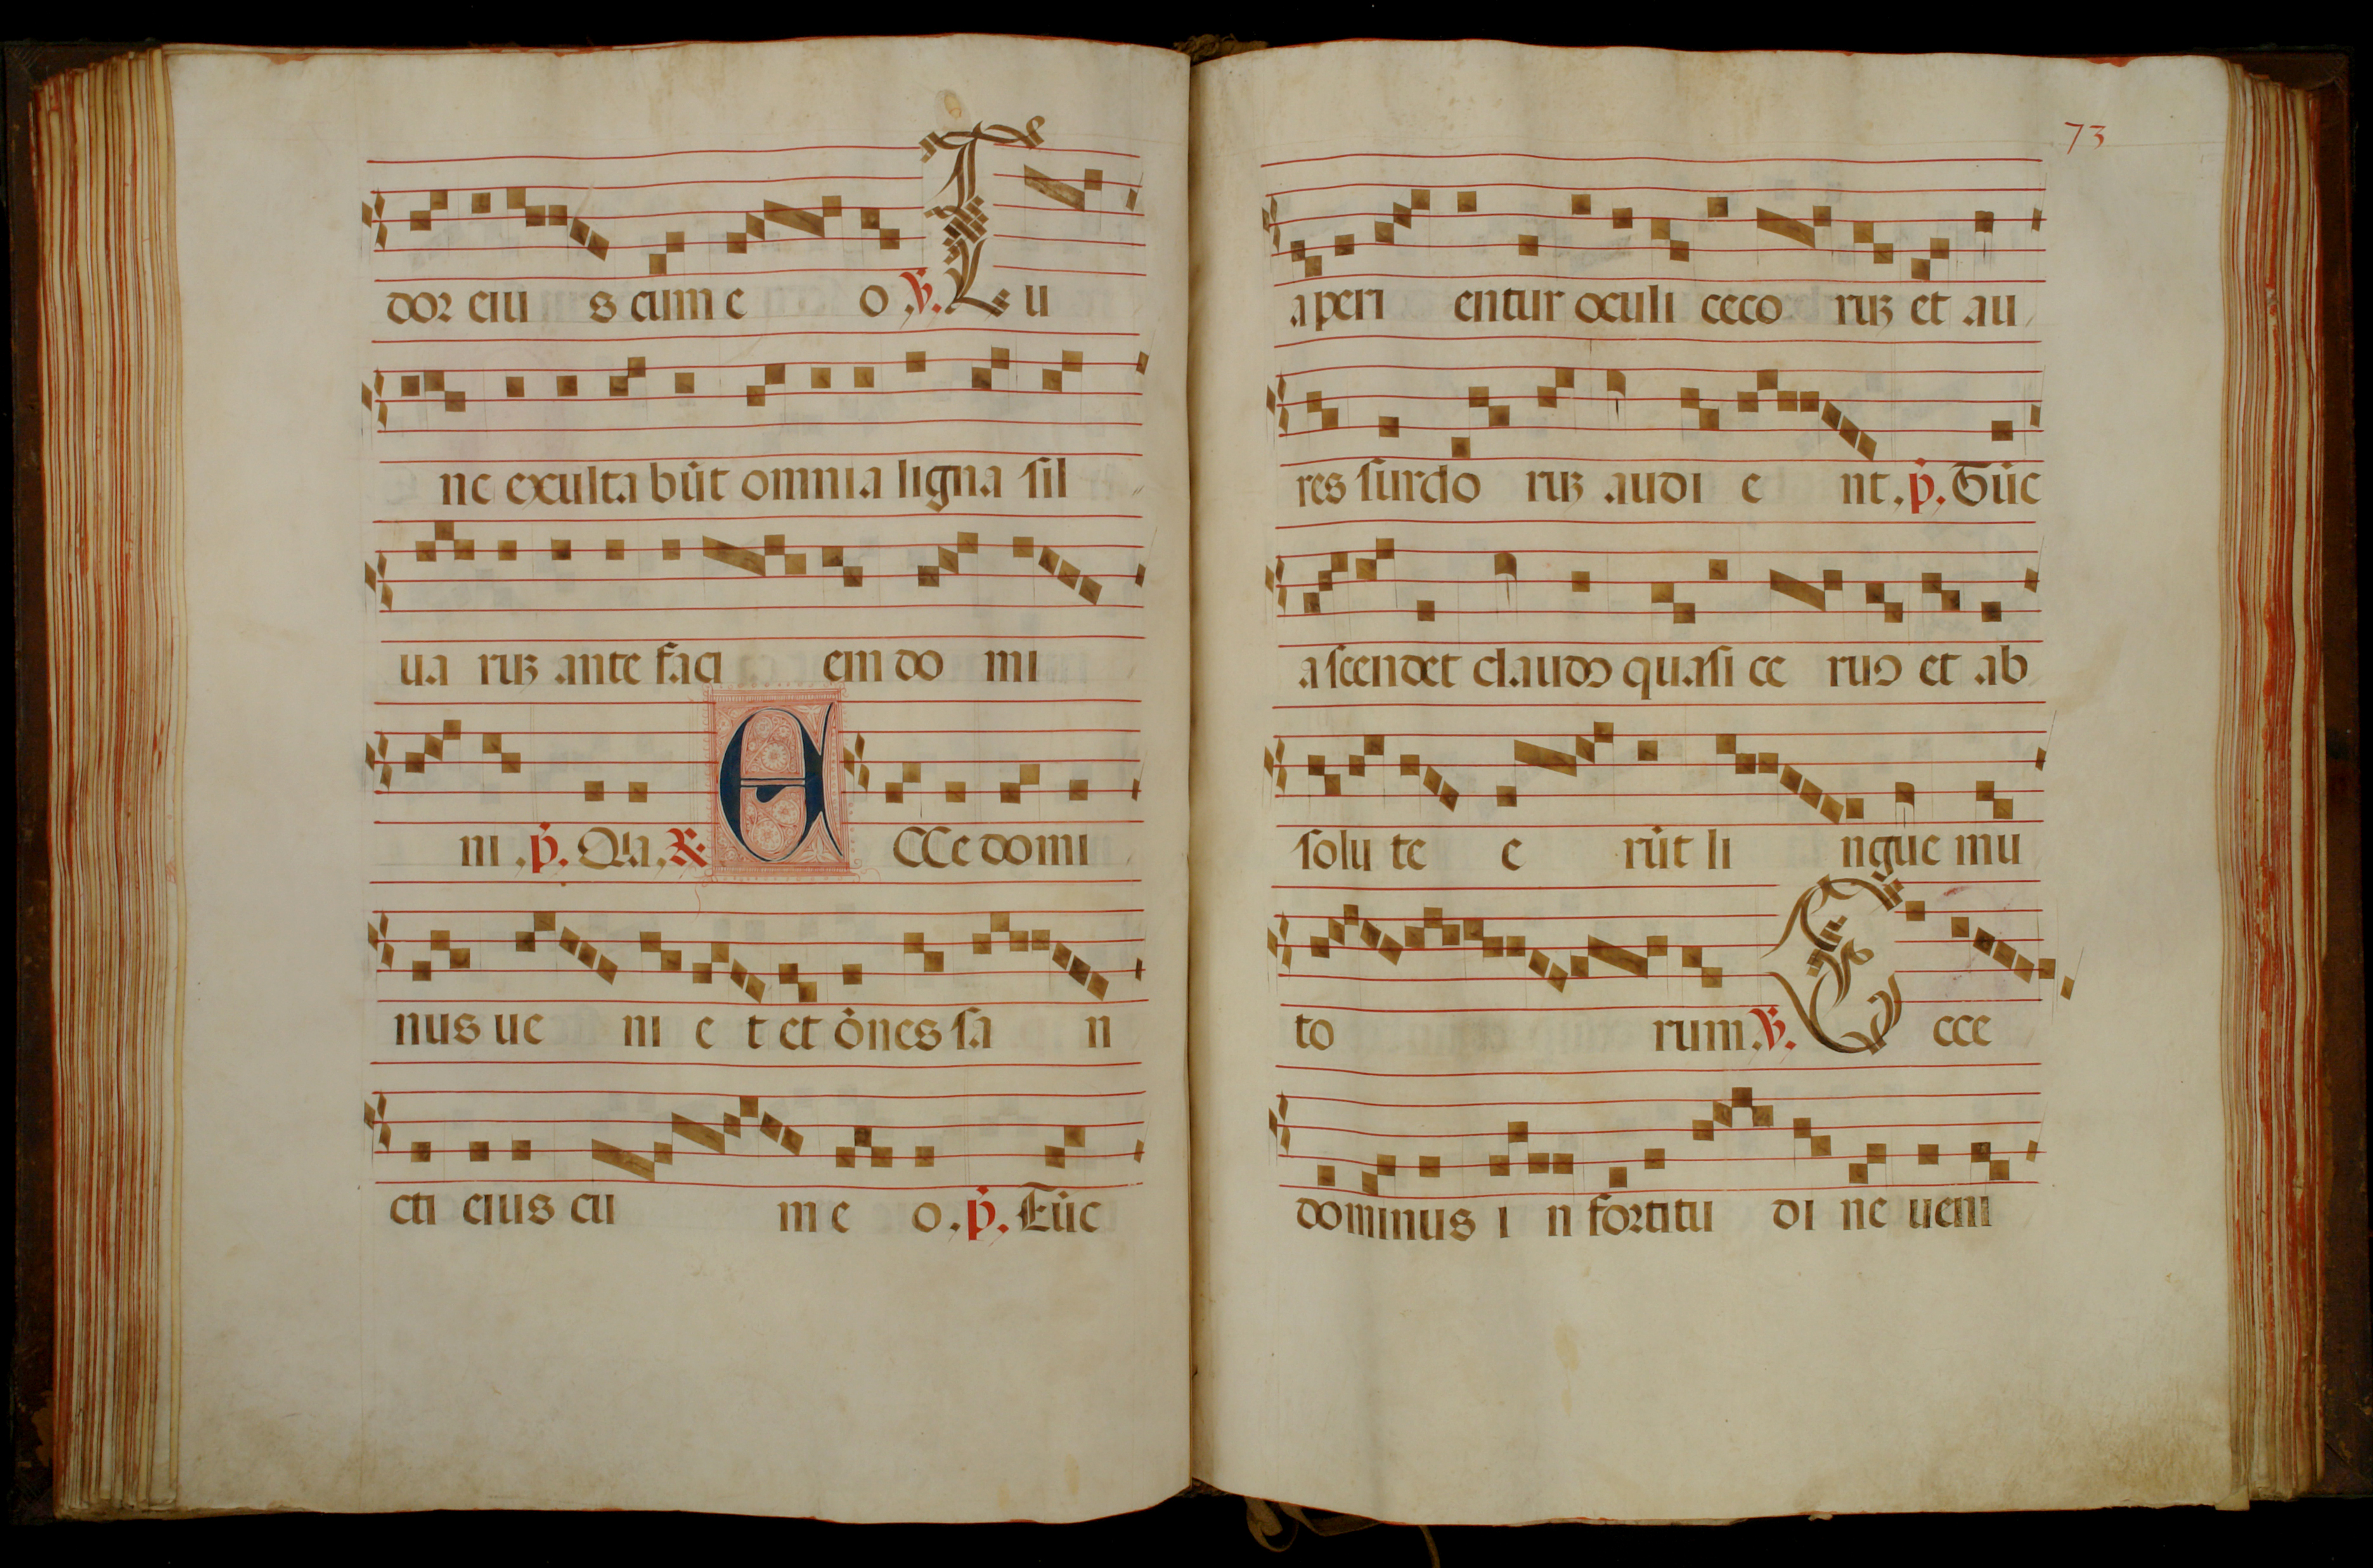 dor eiu s cum e o ℣. Lu
ne exulta būt omnia ligna sil
ua ruꝫ ante faci em do mi
ni . p̄. Qia. ℟. E CCe domi
nus ue ni e t et ōnes sa n
cti eius cu m e o . p̄. Tūc
73
aperi entur oculi ceco ruꝫ et au
res surdo ruꝫ audi e nt . p̄. Tūc
ascendet claudꝰ quasi ce ruꝰ et ab
solu te e rūt li ngue mu
to rum ℣. E cce
dominus i n fortitu di ne ueni